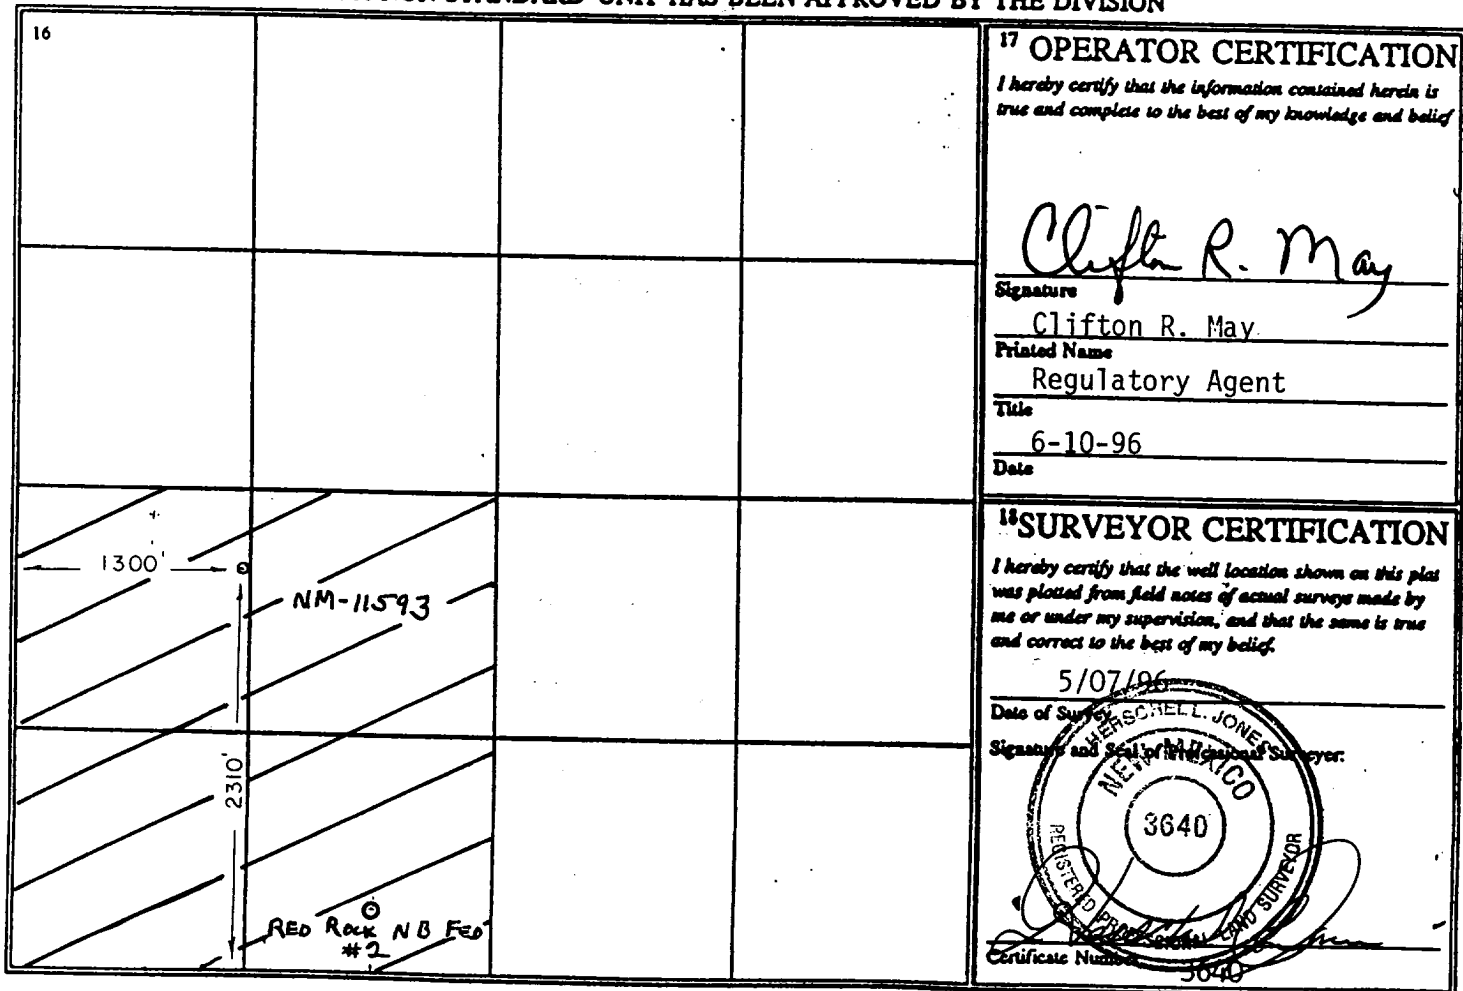 STANDARD UNIT HAS BEEN APPROVED BY THE DIVISION
16
1300'
NM-11593
2310'
RED ROCK NB FED
#2
17 OPERATOR CERTIFICATION
I hereby certify that the information contained herein is
true and complete to the best of my knowledge and belief
Clifton R. May
Signature
Clifton R. May
Printed Name
Regulatory Agent
Title
6-10-96
Date
18 SURVEYOR CERTIFICATION
I hereby certify that the well location shown on this plat
was plotted from field notes of actual surveys made by
me or under my supervision, and that the same is true
and correct to the best of my belief.
5/07/96
Date of Survey
Signature and Seal of Professional Surveyer:
HERSCHEL L. JONES
NEW MEXICO
3640
REGISTERED PROFESSIONAL LAND SURVEYOR
Certificate Number
3640